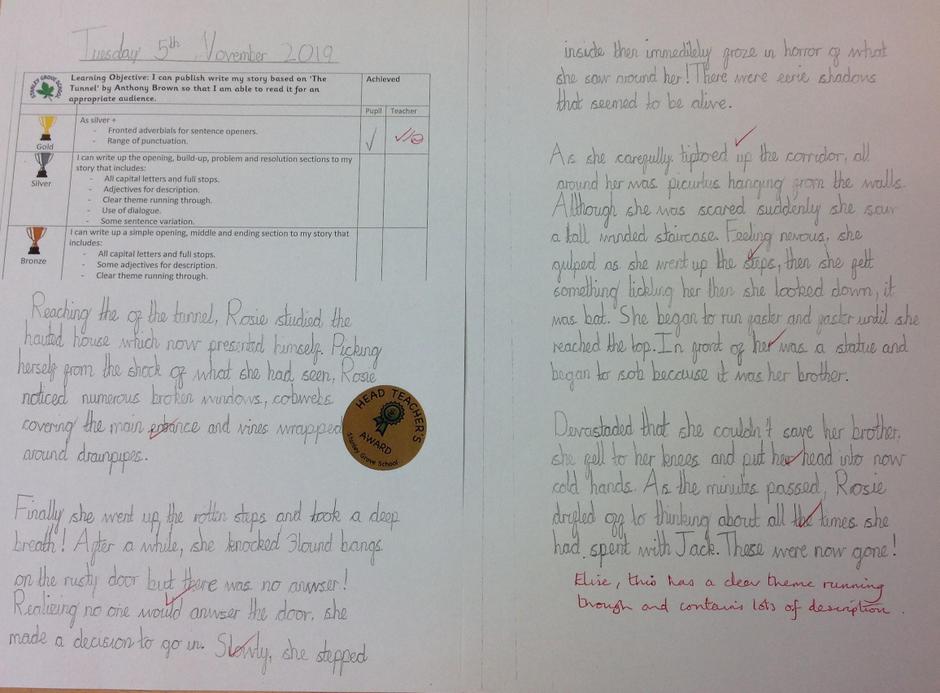 Tuesday 5th November 2019
STANLEY GROVE SCHOOL
Learning Objective: I can publish write my story based on 'The
Tunnel' by Anthony Brown so that I am able to read it for an
appropriate audience.
Achieved
Pupil Teacher
Gold
As silver +
- Fronted adverbials for sentence openers.
- Range of punctuation.
Silver
I can write up the opening, build-up, problem and resolution sections to my
story that includes:
- All capital letters and full stops.
- Adjectives for description.
- Clear theme running through.
- Use of dialogue.
- Some sentence variation.
Bronze
I can write up a simple opening, middle and ending section to my story that
includes:
- All capital letters and full stops.
- Some adjectives for description.
- Clear theme running through.
Reaching the of the tunnel, Rosie studied the
hauted house which now presented himself. Picking
herself from the shock of what she had seen, Rosie
noticed numerous broken windows, cobwebs
covering the main entrance and vines wrapped
around drainpipes.
HEAD TEACHER'S
AWARD
Stanley Grove School
Finally she went up the rotten steps and took a deep
breath! After a while, she knocked 3 lound bangs
on the rusty door but there was no anwser!
Realieing no one would anwser the door, she
made a decision to go in. Slowly, she stepped
inside then immedilely froze in horror of what
she saw around her! There were eerie shadows
that seemed to be alive.
As she carefully tiptoed up the corridor, all
around her was picurtus hanging from the walls.
Although she was scared suddenly she saw
a tall winded staircase. Feeling nevous, she
gulped as she went up the steps, then she felt
something tickling her then she looked down, it
was bat. She began to run faster and faster until she
reached the top. In front of her was a statue and
began to sob because it was her brother.
Devastaded that she couldn't save her brother,
she fell to her knees and put her head into now
cold hands. As the minutes passed, Rosie
drifled off to thinking about all the times she
had spent with Jack. These were now gone!
Elsie, this has a clear theme running
though and contains lots of description.